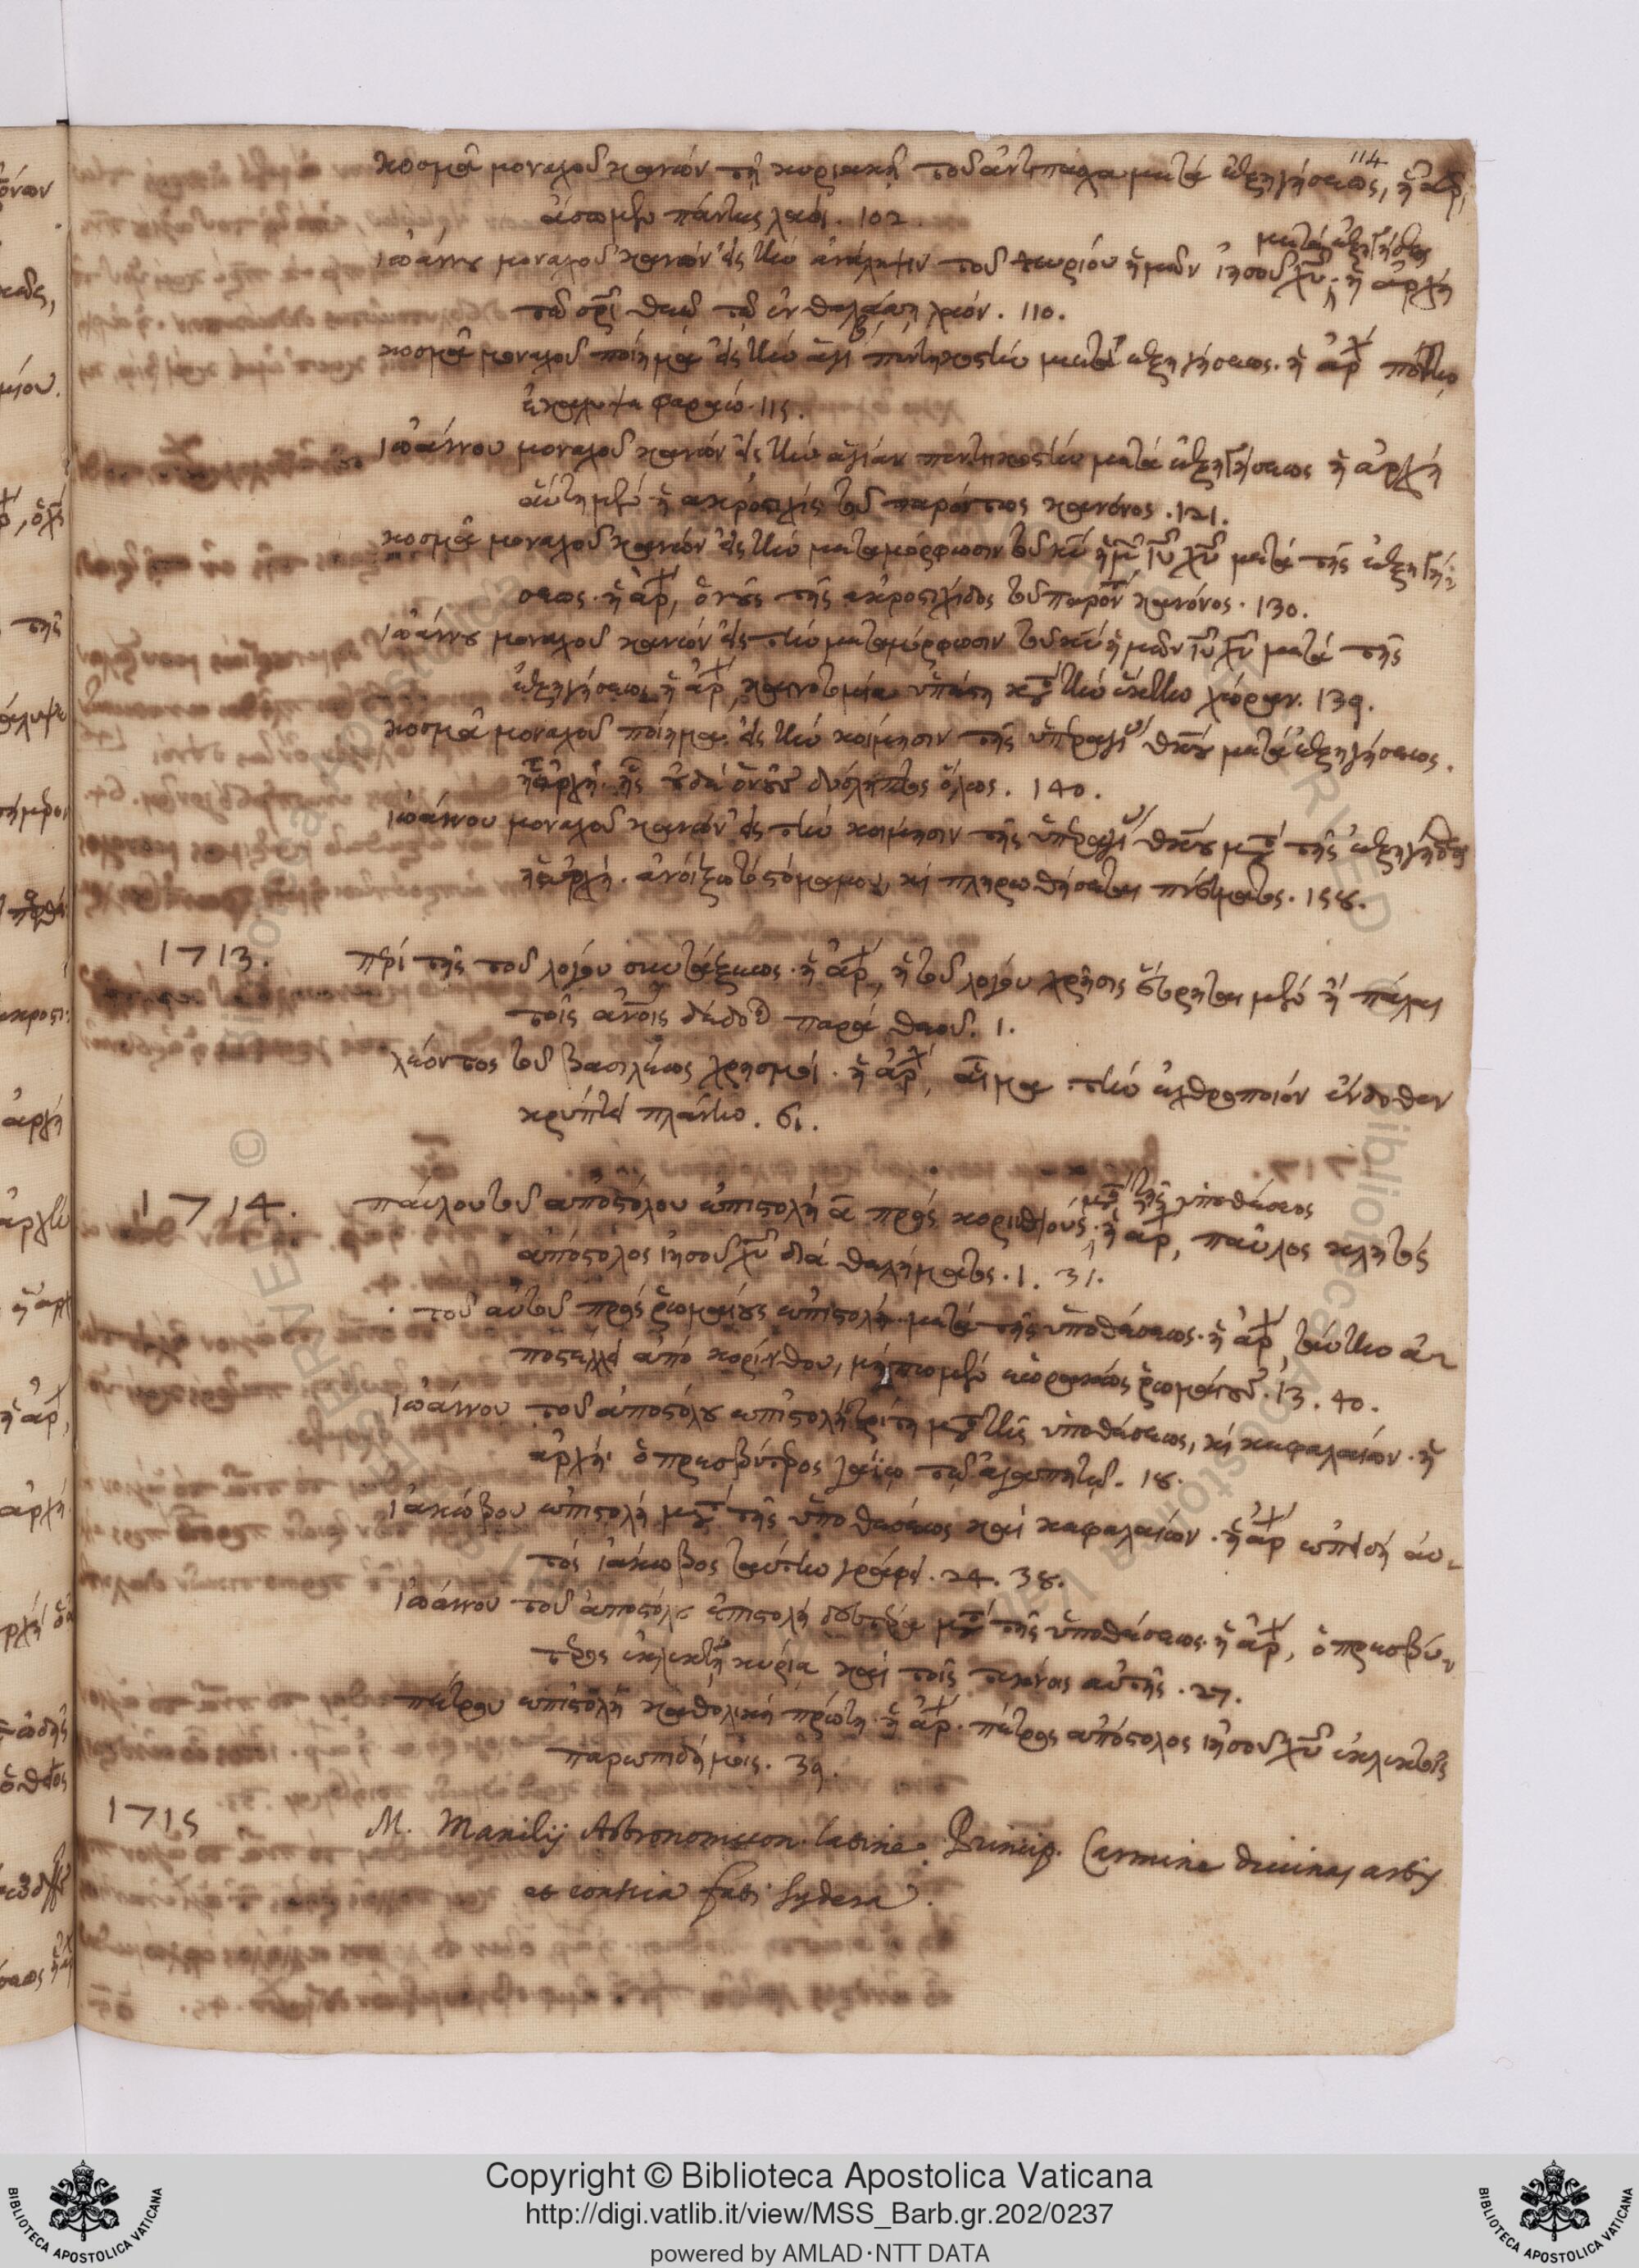 114
κοσμᾶ μοναχοῦ κανών τῇ κυριακῇ τοῦ ἀντίπασχα μετά ἐξηγήσεως, ἡ ἀρχ,
ἄσωμεν πάντες λαοί. 102
μετά ἐξηγήσεως
ἰωάννου μοναχοῦ κανών εἰς τήν ἀνάληψιν τοῦ κυρίου ἡμῶν ἰησοῦ χῦ. ἡ ἀρχή
τῷ σρι θεῷ τῷ ἐν θαλάσσῃ λαόν. 110.
κοσμᾶ μοναχοῦ ποίημα εἰς τήν ἁγί πεντηκοστήν μετά ἐξηγήσεως. ἡ ἀρχ πόντῳ
ἐκάλυψε φαραώ. 115.
ἰωάννου μοναχοῦ κανών εἰς τήν ἁγίαν πεντηκοστήν μετά ἐξηγήσεως ἡ ἀρχή
αὕτη μέν ἡ ἀκροστιχίς τοῦ παρόντος κανόνος. 121.
κοσμᾶ μοναχοῦ κανών εἰς τήν μεταμόρφωσιν τοῦ κυ ἡμ ιυ χυ μετά τῆς ἐξηγή-
σεως. ἡ ἀρχ, ὁ νοῦς τῆς ἀκροστιχίδος τοῦ παρόν κανόνος. 130.
ἰωάννου μοναχοῦ κανών εἰς τήν μεταμόρφωσιν τοῦ κυ ἡμῶν ιυ χυ μετά τῆς
ἐξηγήσεως. ἡ ἀρχ, καινοτομία
κοσμᾶ μοναχοῦ ποίημα εἰς τήν κοίμησιν τῆς ὑπεραγί θκου μετά ἐξηγήσεως.
ἡ ἀρχή. 140.
ἰωάννου μοναχοῦ κανών εἰς τήν κοίμησιν τῆς ὑπεραγί θκου μετά τῆς ἐξηγήσεως
ἡ ἀρχή. ἀνοίξω τό στόμα μου, καί πληρωθήσεται πνεύματος. 158.
1713. περί τῆς τοῦ λόγου συντάξεως. ἡ ἀρχ, ἡ τοῦ λόγου χρῆσις εὕρηται μέν ἡ πάλαι
τοῖς ἀνοις δέδο παρά θεοῦ. 1.
λέοντος τοῦ βασιλέως χρησμοί. ἡ ἀρχ, αἷμα τήν ἐχθροποιόν ἔνδοθεν
κρύπτει πλάνην. 61.
1714. παύλου τοῦ ἀποστόλου ἐπιστολή α πρός κορινθίους, μετά τῆς ὑποθέσεως. ἡ ἀρχ, παῦλος κλητός
ἀπόστολος ἰησοῦ χῦ διά θελήματος. 1. 31.
τοῦ αὐτοῦ πρός ῥωμαίους ἐπιστολή μετά τῆς ὑποθέσεως. ἡ ἀρχ ταύτην ἀπ
ποστέλλει ἀπό κορίνθου, μήπω μέν ἑωρακώς ῥωμαίους. 13. 40.
ἰωάννου τοῦ ἀποστόλου ἐπιστολή τρίτη μετά τῆς ὑποθέσεως, καί κεφαλαίων. ἡ
ἀρχή. ὁ πρεσβύτερος γαΐῳ τῷ ἀγαπητῷ. 18.
ἰακώβου ἐπιστολή μετά τῆς ὑποθέσεως καί κεφαλαίων. ἡ ἀρχ ἐπειδή αὐ-
τός ἰάκωβος ταύτην γράφει. 24. 38.
ἰωάννου τοῦ ἀποστόλου ἐπιστολή δευτέρα μετά τῆς ὑποθέσεως. ἡ ἀρχ, ὁ πρεσβύ-
τερος ἐκλεκτῇ κυρίᾳ καί τοῖς τέκνοις αὐτῆς. 27.
πέτρου ἐπιστολή καθολική πρώτη. ἡ ἀρχ. πέτρος ἀπόστολος ἰησοῦ χῦ ἐκλεκτοῖς
παρεπιδήμοις. 39.
1715 M. Manilij Astronomicon. latine. Princip. Carmine diuinas artes
et conscia fati sydera.
Copyright © Biblioteca Apostolica Vaticana
http://digi.vatlib.it/view/MSS_Barb.gr.202/0237
powered by AMLAD·NTT DATA
BIBLIOTECA APOSTOLICA VATICANA
BIBLIOTECA APOSTOLICA VATICANA